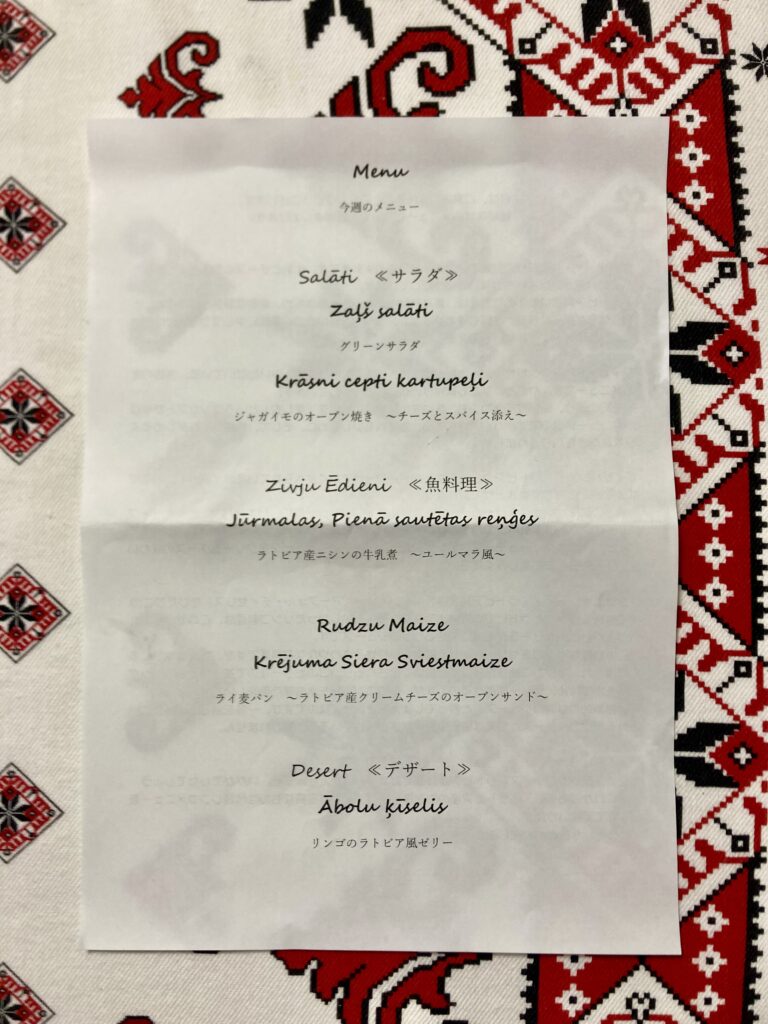 Menu
今週のメニュー
Salāti ≪サラダ≫
Zaļš salāti
グリーンサラダ
Krāsni cepti kartupeļi
ジャガイモのオーブン焼き ～チーズとスパイス添え～
Zivju Ēdieni ≪魚料理≫
Jūrmalas, Pienā sautētas reņģes
ラトビア産ニシンの牛乳煮 ～ユールマラ風～
Rudzu Maize
Krējuma Siera Sviestmaize
ライ麦パン ～ラトビア産クリームチーズのオープンサンド～
Desert ≪デザート≫
Ābolu ķīselis
リンゴのラトビア風ゼリー